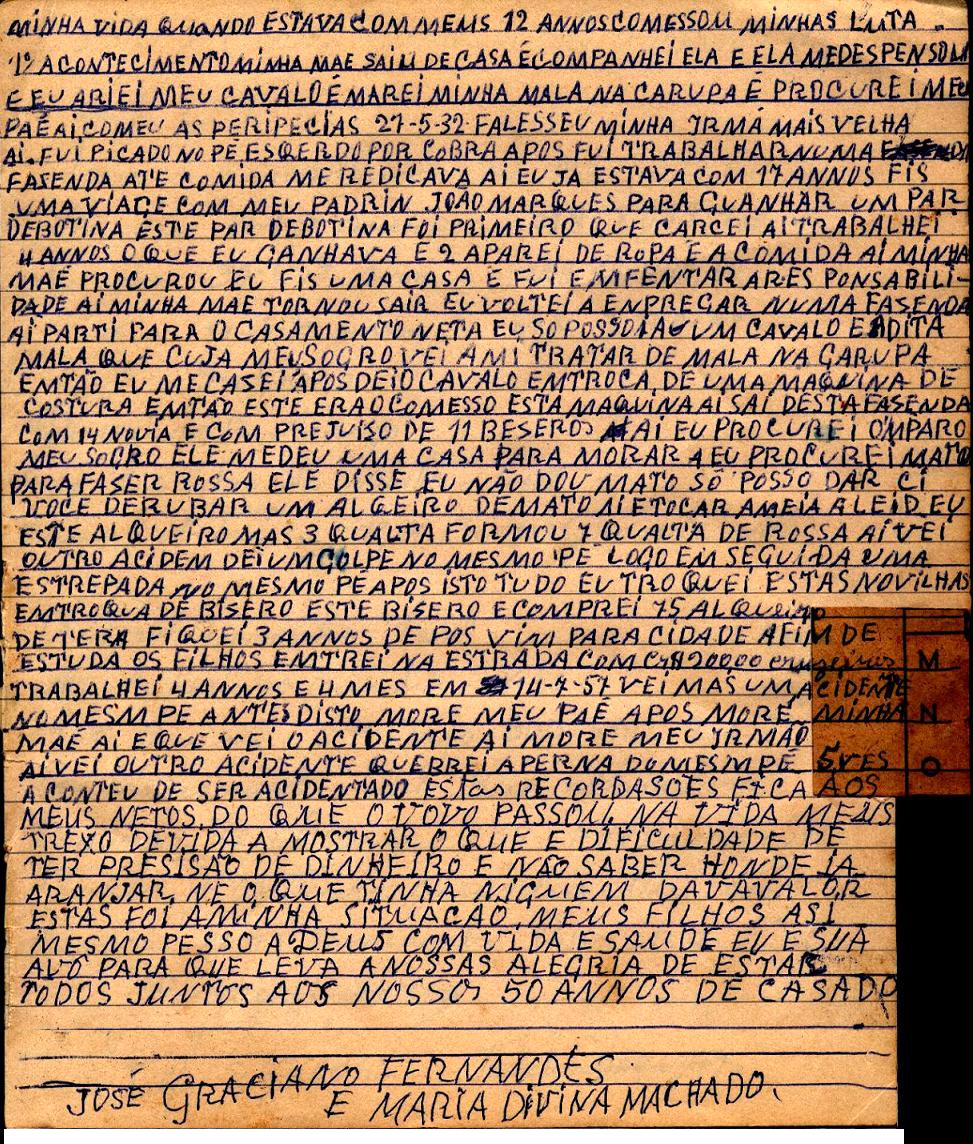 MINHA VIDA QUANDO ESTAVA COM MEUS 12 ANNOS COMESSOU MINHAS LUTA.
1º ACONTECIMENTO MINHA MAE SAIU DE CASA É COMPANHEI ELA E ELA ME DESPENSOU
E EU ARIEI MEU CAVALO É MAREI MINHA MALA NA CARUPA É PROCUREI MEU
PAÉ AI COMEU AS PERIPECIAS 27-5-32 FALESSEU MINHA IRMÁ MAIS VELHA
AI. FUI PICADO NO PÉ ESQERDO POR COBRA APOS FUI TRABALHAR NUMA
FASENDA ATE COMIDA ME REDICAVA AI EU JA ESTAVA COM 17 ANNOS FIS
UMA VIAGE COM MEU PADRIN JOÃO MARQUES PARA GUANHAR UM PAR
DEBOTINA ESTE PAR DEBOTINA FOI PRIMEIRO QUE CARCEI AI TRABALHEI
4 ANNOS O QUE EU GANHAVA E 2 APAREI DE ROPA E A COMIDA AI MINHA
MAE PROCUROU EU FIS UMA CASA E FUI EMFENTAR ARES PONSABILI-
DADE AI MINHA MAE TORNOU SAIR EU VOLTEI A ENPREGAR NUMA FASENDA
AI PARTI PARA O CASAMENTO NETA EU SO POSSOIA UM CAVALO E ADITA
MALA QUE CUJA MEU SOGRO VEI A MI TRATAR DE MALA NA GARUPA
EMTÃO EU ME CASEI APOS DEI O CAVALO EMTROCA DE UMA MAQUINA DE
COSTURA EMTÃO ESTE ERA O COMESSO ESTA MAQUINA AI SAI DESTA FASENDA
COM 14 NOVIA E COM PREJUISO DE 11 BESEROS AI EU PROCUREI OMPARO
MEU SOGRO ELE MEDEU UMA CASA PARA MORAR A EU PROCUREI MATO
PARA FASER ROSSA ELE DISSE EU NÃO DOU MATO SÓ POSSO DAR CI
VOCE DERUBAR UM ALQEIRO DEMATO NIETOCAR AMEIA ALEID EU
ESTE ALQUEIRO MAS 3 QUALTA FORMOU 7 QUALTA DE ROSSA AI VEI
OUTRO ACIDEM DEI UM GOLPE NO MESMO PÉ LOGO EM SEGUIDA UMA
ESTREPADA NO MESMO PÉ APOS ISTO TUDO EU TROQUEI ESTAS NOVILHAS
EMTROQUA DE BISERO ESTE BISERO E COMPREI 75 ALQueir
DE TERA FIQUEI 3 ANNOS DE POS VIM PARA CIDADE AFIM DE
ESTUDA OS FILHOS EMTREI NA ESTRADA COM CR$ 20000 cruseiros M
TRABALHEI 4 ANNOS E 4 MES EM 14-7-57 VEI MAS UM ACIDENTE
NO MESM PE ANTES DISTO MORE MEU PAÉ APOS MORE MINHA N
MAÉ AI E QUE VEI O ACIDENTE AI MORE MEU IRMÃO
AI VEI OUTRO ACIDENTE QUERREI A PERNA DO MESM PÉ 5 VES O
A CONTEU DE SER ACIDENTADO ESTAS RECORDASOES FICA AOS
MEUS NETOS DO QUE O VOVO PASSOU NA VIDA MEUS
TREXO DEVIDA A MOSTRAR O QUE E DIFICULDADE DE
TER PRESISÃO DE DINHEIRO E NÃO SABER HONDE IA
ARANJAR NE O QUE TINHA NIGUEM DAVAVALOR
ESTAS FOI A MINHA SITUACAO MEUS FILHOS ASI
MESMO PESSO A DEUS COM VIDA E SAUDE EU E SUA
AVÓ PARA QUE LEVA A NOSSAS ALEGRIA DE ESTAR
TODOS JUNTOS AOS NOSSOS 50 ANNOS DE CASADO
JOSÉ GRACIANO FERNANDES
E MARIA DIVINA MACHADO.